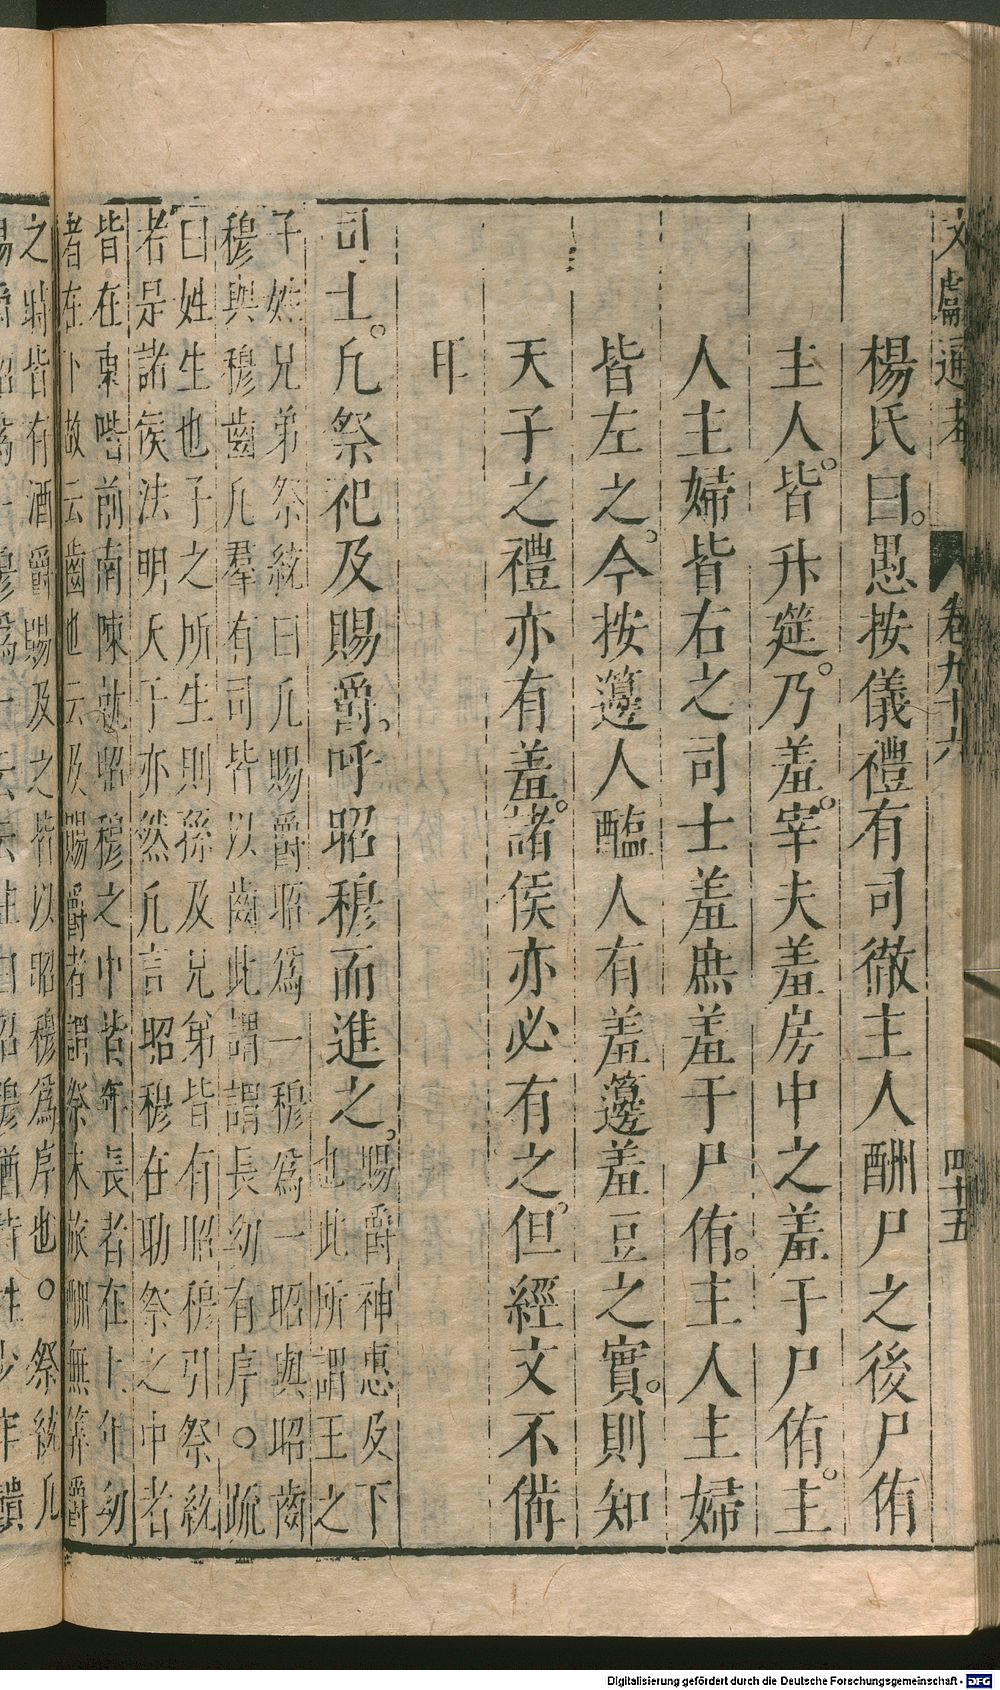 文獻通考 卷九十六 四十五
楊氏曰。愚按儀禮有司徹主人酬尸之後尸侑
主人。皆升筵。乃羞。宰夫羞房中之羞于尸侑。主
人主婦皆右之司士羞庶羞于尸侑。主人主婦
皆左之。今按籩人醢人有羞籩羞豆之實。則知
天子之禮亦有羞。諸侯亦必有之。但經文不備
耳
司士。凡祭祀及賜爵。呼昭穆而進之。賜爵神惠及下
也此所謂王之
子姓兄弟祭統曰凡賜爵昭爲一穆爲一昭與昭齒
穆與穆齒凡羣有司皆以齒此謂謂長幼有序○疏
曰姓生也子之所生則孫及兄弟皆有昭穆引祭統
者是諸侯法明天子亦然凡言昭穆在助祭之中者
皆在東階前南陳就昭穆之中皆年長者在上年幼
者在下故云齒也云及賜爵者謂祭末旅酬無筭爵
之時皆有酒爵賜及之皆以昭穆爲序也○祭統凡
Digitalisierung gefördert durch die Deutsche Forschungsgemeinschaft - DFG